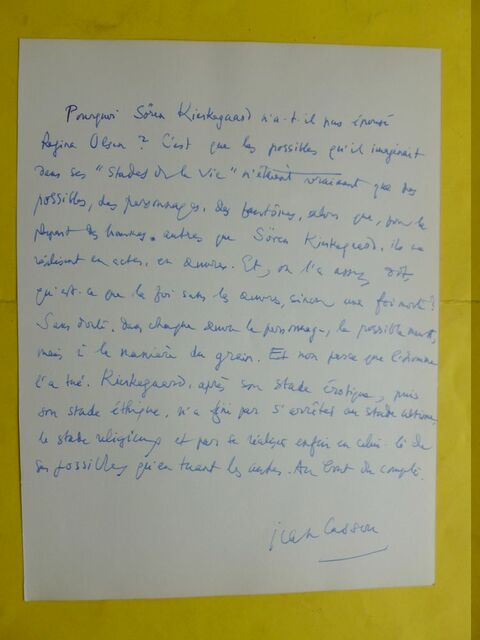 Pourquoi Sören Kierkegaard n'a-t-il pas épousé
Regina Olsen ? C'est que les possibles qu'il imaginait
dans ses "Stades de la Vie" n'étaient vraiment que des
possibles, des personnages, des fantômes, alors que, pour la
plupart des hommes autres que Sören Kierkegaard, ils se
réalisent en actes, en œuvres. Et, on l'a assez dit,
qu'est-ce que la foi sans les œuvres, sinon une foi morte ?
Sans doute, dans chaque œuvre le personnage, le possible meurt,
mais à la manière du grain. Et non parce que l'homme
l'a tué. Kierkegaard, après son stade érotique, puis
son stade éthique, n'a fini par s'arrêter au stade ultime,
le stade religieux et par se réaliser enfin en celui-là de
ses possibles qu'en tuant les autres. Au bout du compte.
Jean Cassou